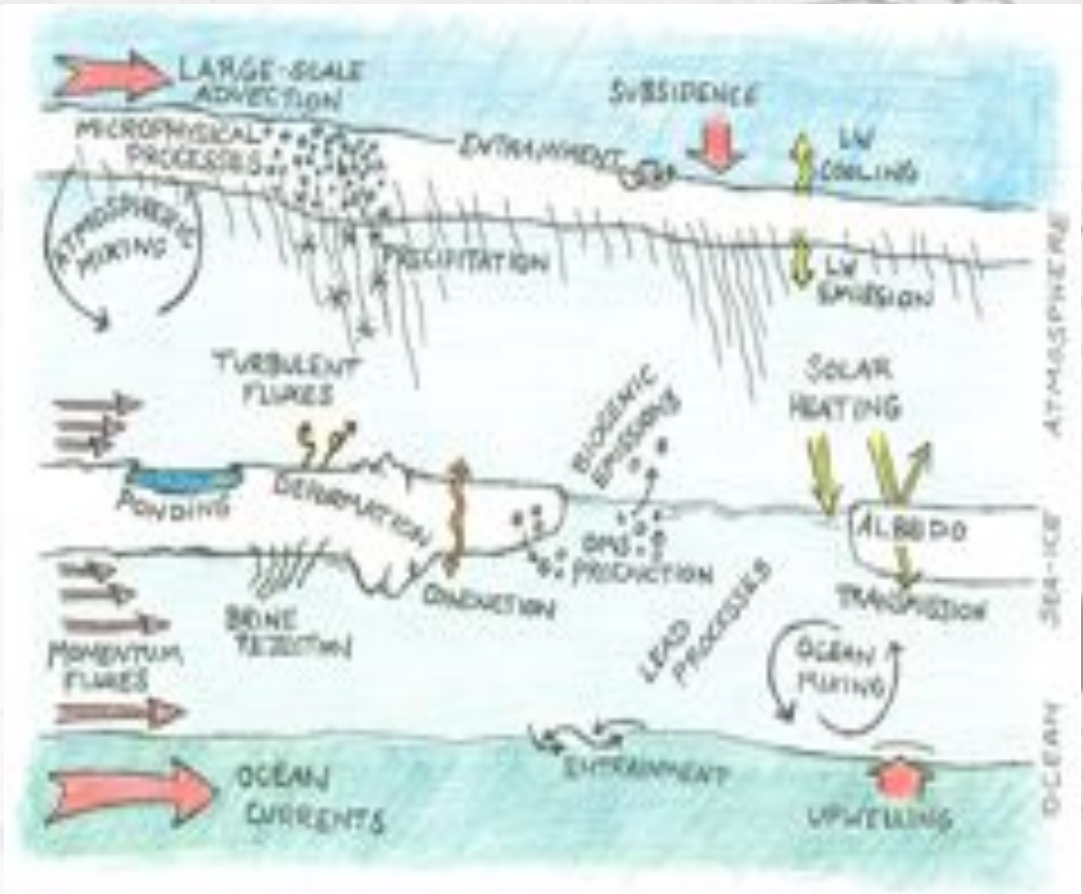 LARGE-SCALE
ADVECTION
SUBSIDENCE
MICROPHYSICAL
PROCESSES
ENTRAINMENT
LW
COOLING
ATMOSPHERIC
MIXING
PRECIPITATION
LW
EMISSION
ATMOSPHERE
TURBULENT
FLUXES
BIOGENIC
EMISSIONS
SOLAR
HEATING
PONDING
DEFORMATION
ALBEDO
DMS
PRODUCTION
CONDUCTION
TRANSMISSION
SEA-ICE
BRINE
REJECTION
LEAD
PROCESSES
MOMENTUM
FLUXES
OCEAN
MIXING
ENTRAINMENT
OCEAN
CURRENTS
UPWELLING
OCEAN